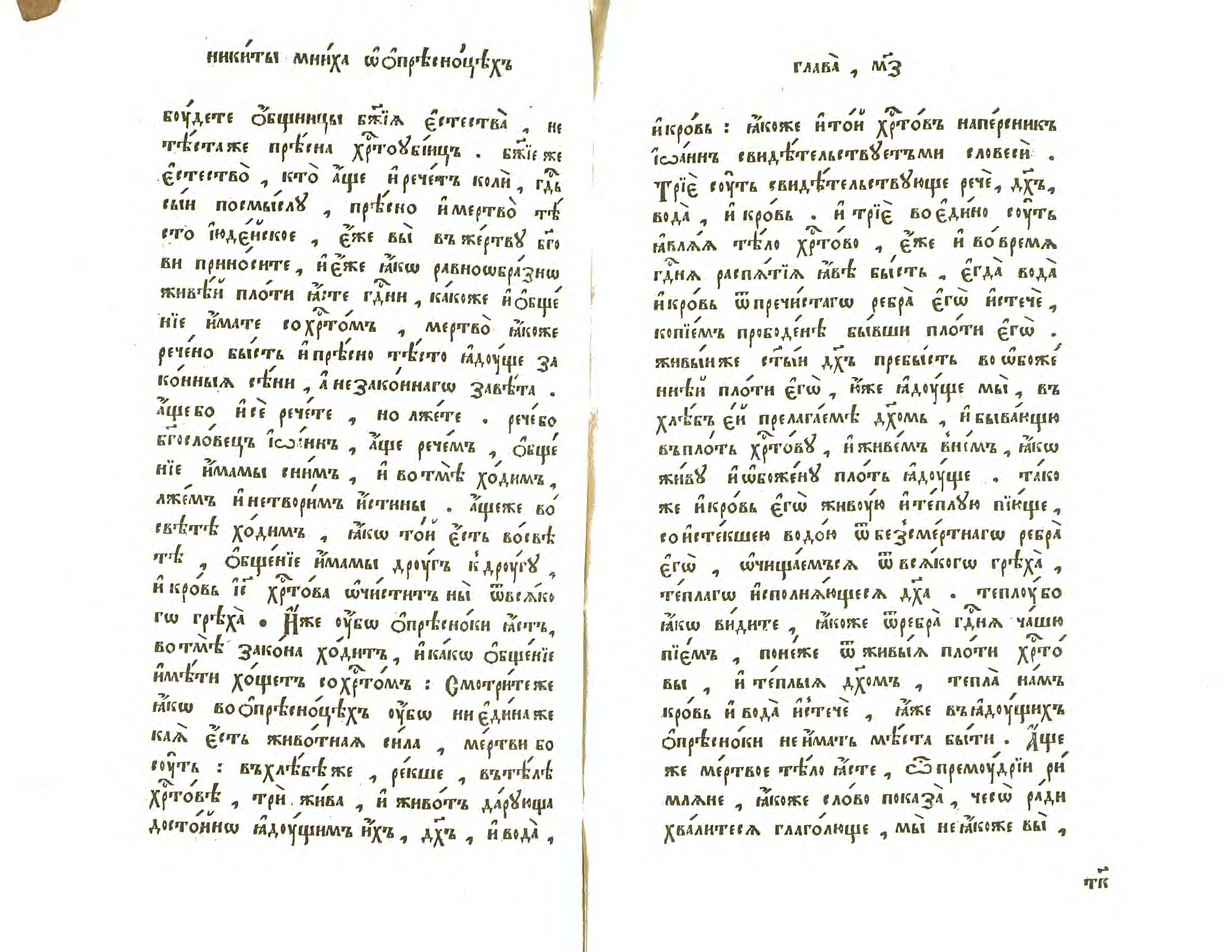 ники́ты мни́ха ѡ҆ опрѣсно́цѣхъ
боу́дете ѻ҆́бщницы бж҃їѧ є҆стества̀ , не
тѣ́ста же прѣ́сна хрⷭ҇тоуби́ицъ . бж҃їе же
є҆стество̀ , кто̀ а҆́ще и҆ рече́тъ колѝ , гдѣ̀
сы́и посмы́слꙋ , прѣ́сно и҆ мертво̀ тѣ́
сто і҆юде́йское , є҆́же вы̀ въ же́ртвꙋ бг҃о
ви прино́сите , и҆ є҆́же ꙗ҆́кѡ равноѡбра́знѡ
живѣ́й пло́ти ꙗ҆́сте гдⷭ҇ни , ка́коже и҆ ѻ҆бще́
нїе и҆́мате со хрⷭ҇то́мъ , мертво̀ ꙗ҆́коже
рече́но бы́сть и҆ прѣ́сно тѣ́сто ꙗ҆доу́ще за
ко́нныѧ сѣ́ни , а҆ не зако́ннагѡ завѣ́та .
а҆́ще бо и҆ сѐ рече́те , но лже́те . рече́ бо
бг҃осло́вецъ і҆ѡа́ннъ , а҆́ще рече́мъ , ѻ҆бще́
нїе и҆́мамы сни́мъ , и҆ во тмѣ̀ хо́димъ ,
лже́мъ и҆ не твори́мъ и҆́стины . а҆́ще же во́
свѣ́тѣ хо́димъ , ꙗ҆́кѡ то́й є҆́сть во́ свѣ
тѣ , ѻ҆бще́нїе и҆́мамы дроу́гъ к̾ дроу́гꙋ ,
и҆ кро́вь і҆с҃ хрⷭ҇то́ва ѡ҆чи́ститъ ны̀ ѿ всѧ́ко
гѡ грѣха̀ . И҆́же оу҆́бѡ ѻ҆прѣсно́ки ꙗ҆́стъ ,
во тмѣ̀ зако́на хо́дитъ , и҆ ка́кѡ ѻ҆бще́нїе
и҆мѣ́ти хо́щетъ со хрⷭ҇то́мъ : Смотри́те же
ꙗ҆́кѡ во ѻ҆прѣсно́цѣхъ оу҆́бѡ ни є҆ди́на же
ка́ѧ є҆́сть живо́тнаѧ си́ла , ме́ртви бо
соу́ть : въ хлѣ́бѣ же , ре́кше , въ тѣ́лѣ
хрⷭ҇то́вѣ , трѝ жи́ва , и҆ живо́тъ да́рꙋюща
досто́йнѡ ꙗ҆доу́щимъ и҆́хъ , дх҃ъ , и҆ вода̀ ,
глава̀ , м҃з
и҆ кро́вь : ꙗ҆́коже и҆ то́й хрⷭ҇то́въ напе́рсникъ
і҆ѡа́ннъ свидѣ́тельствꙋетъ ми словесѝ .
Трїѐ соу́ть свидѣ́тельствꙋюще речѐ , дх҃ъ ,
вода̀ , и҆ кро́вь . и҆ трїѐ во є҆ди́но соу́ть
ꙗ҆влѧ́ѧ тѣ́ло хрⷭ҇то́во , є҆́же и҆ во вре́мѧ
гдⷭ҇нѧ распѧ́тїѧ ꙗ҆́вѣ бы́сть , є҆гда̀ вода̀
и҆ кро́вь ѿ пречи́стагѡ ребра̀ є҆гѡ̀ и҆стечѐ ,
копїе́мъ прободе́нѣ бы́вши пло́ти є҆гѡ̀ .
живы́и же ст҃ы́и дх҃ъ пребы́сть во ѡ҆боже́
ннѣ́й пло́ти є҆гѡ̀ , ю҆́же ꙗ҆доу́ще мы̀ , въ
хлѣ́бъ є҆́й прелага́емѣ дх҃омь , и҆ быва́ющю
въ пло́ть хрⷭ҇то́вꙋ , и҆ живе́мъ в̾не́мъ , ꙗ҆́кѡ
жи́вꙋ и҆ ѡ҆боже́нꙋ пло́ть ꙗ҆доу́ще . та́ко
же и҆ кро́вь є҆гѡ̀ живоу́ю и҆ те́плꙋю пїю́ще ,
со и҆сте́кшею водо́ю ѿ безсме́ртнагѡ ребра̀
є҆гѡ̀ , ѡ҆чища́емъсѧ ѿ всѧ́когѡ грѣха̀ ,
те́плагѡ и҆сполнѧ́ющесѧ дх҃а . теплоу́ бо
ꙗ҆́кѡ ви́дите , ꙗ҆́коже ѿ ребра̀ гдⷭ҇нѧ ча́шю
пїе́мъ , поне́же ѿ живы́ѧ пло́ти хрⷭ҇то́
вы , и҆ те́плыѧ дх҃омъ , тепла̀ на́мъ
кро́вь и҆ вода̀ и҆стечѐ , ꙗ҆́же въ ꙗ҆доу́щихъ
ѻ҆прѣсно́ки не и҆́мать мѣ́ста бы́ти . А҆́ще
же ме́ртвое тѣ́ло ꙗ҆́сте , ѽ премоу́дрїи ри́
млѧне , ꙗ҆́коже сло́во показа̀ , чесѡ̀ ра́ди
хва́литесѧ глаго́люще , мы̀ не ꙗ҆́коже вы̀ ,
тк҃